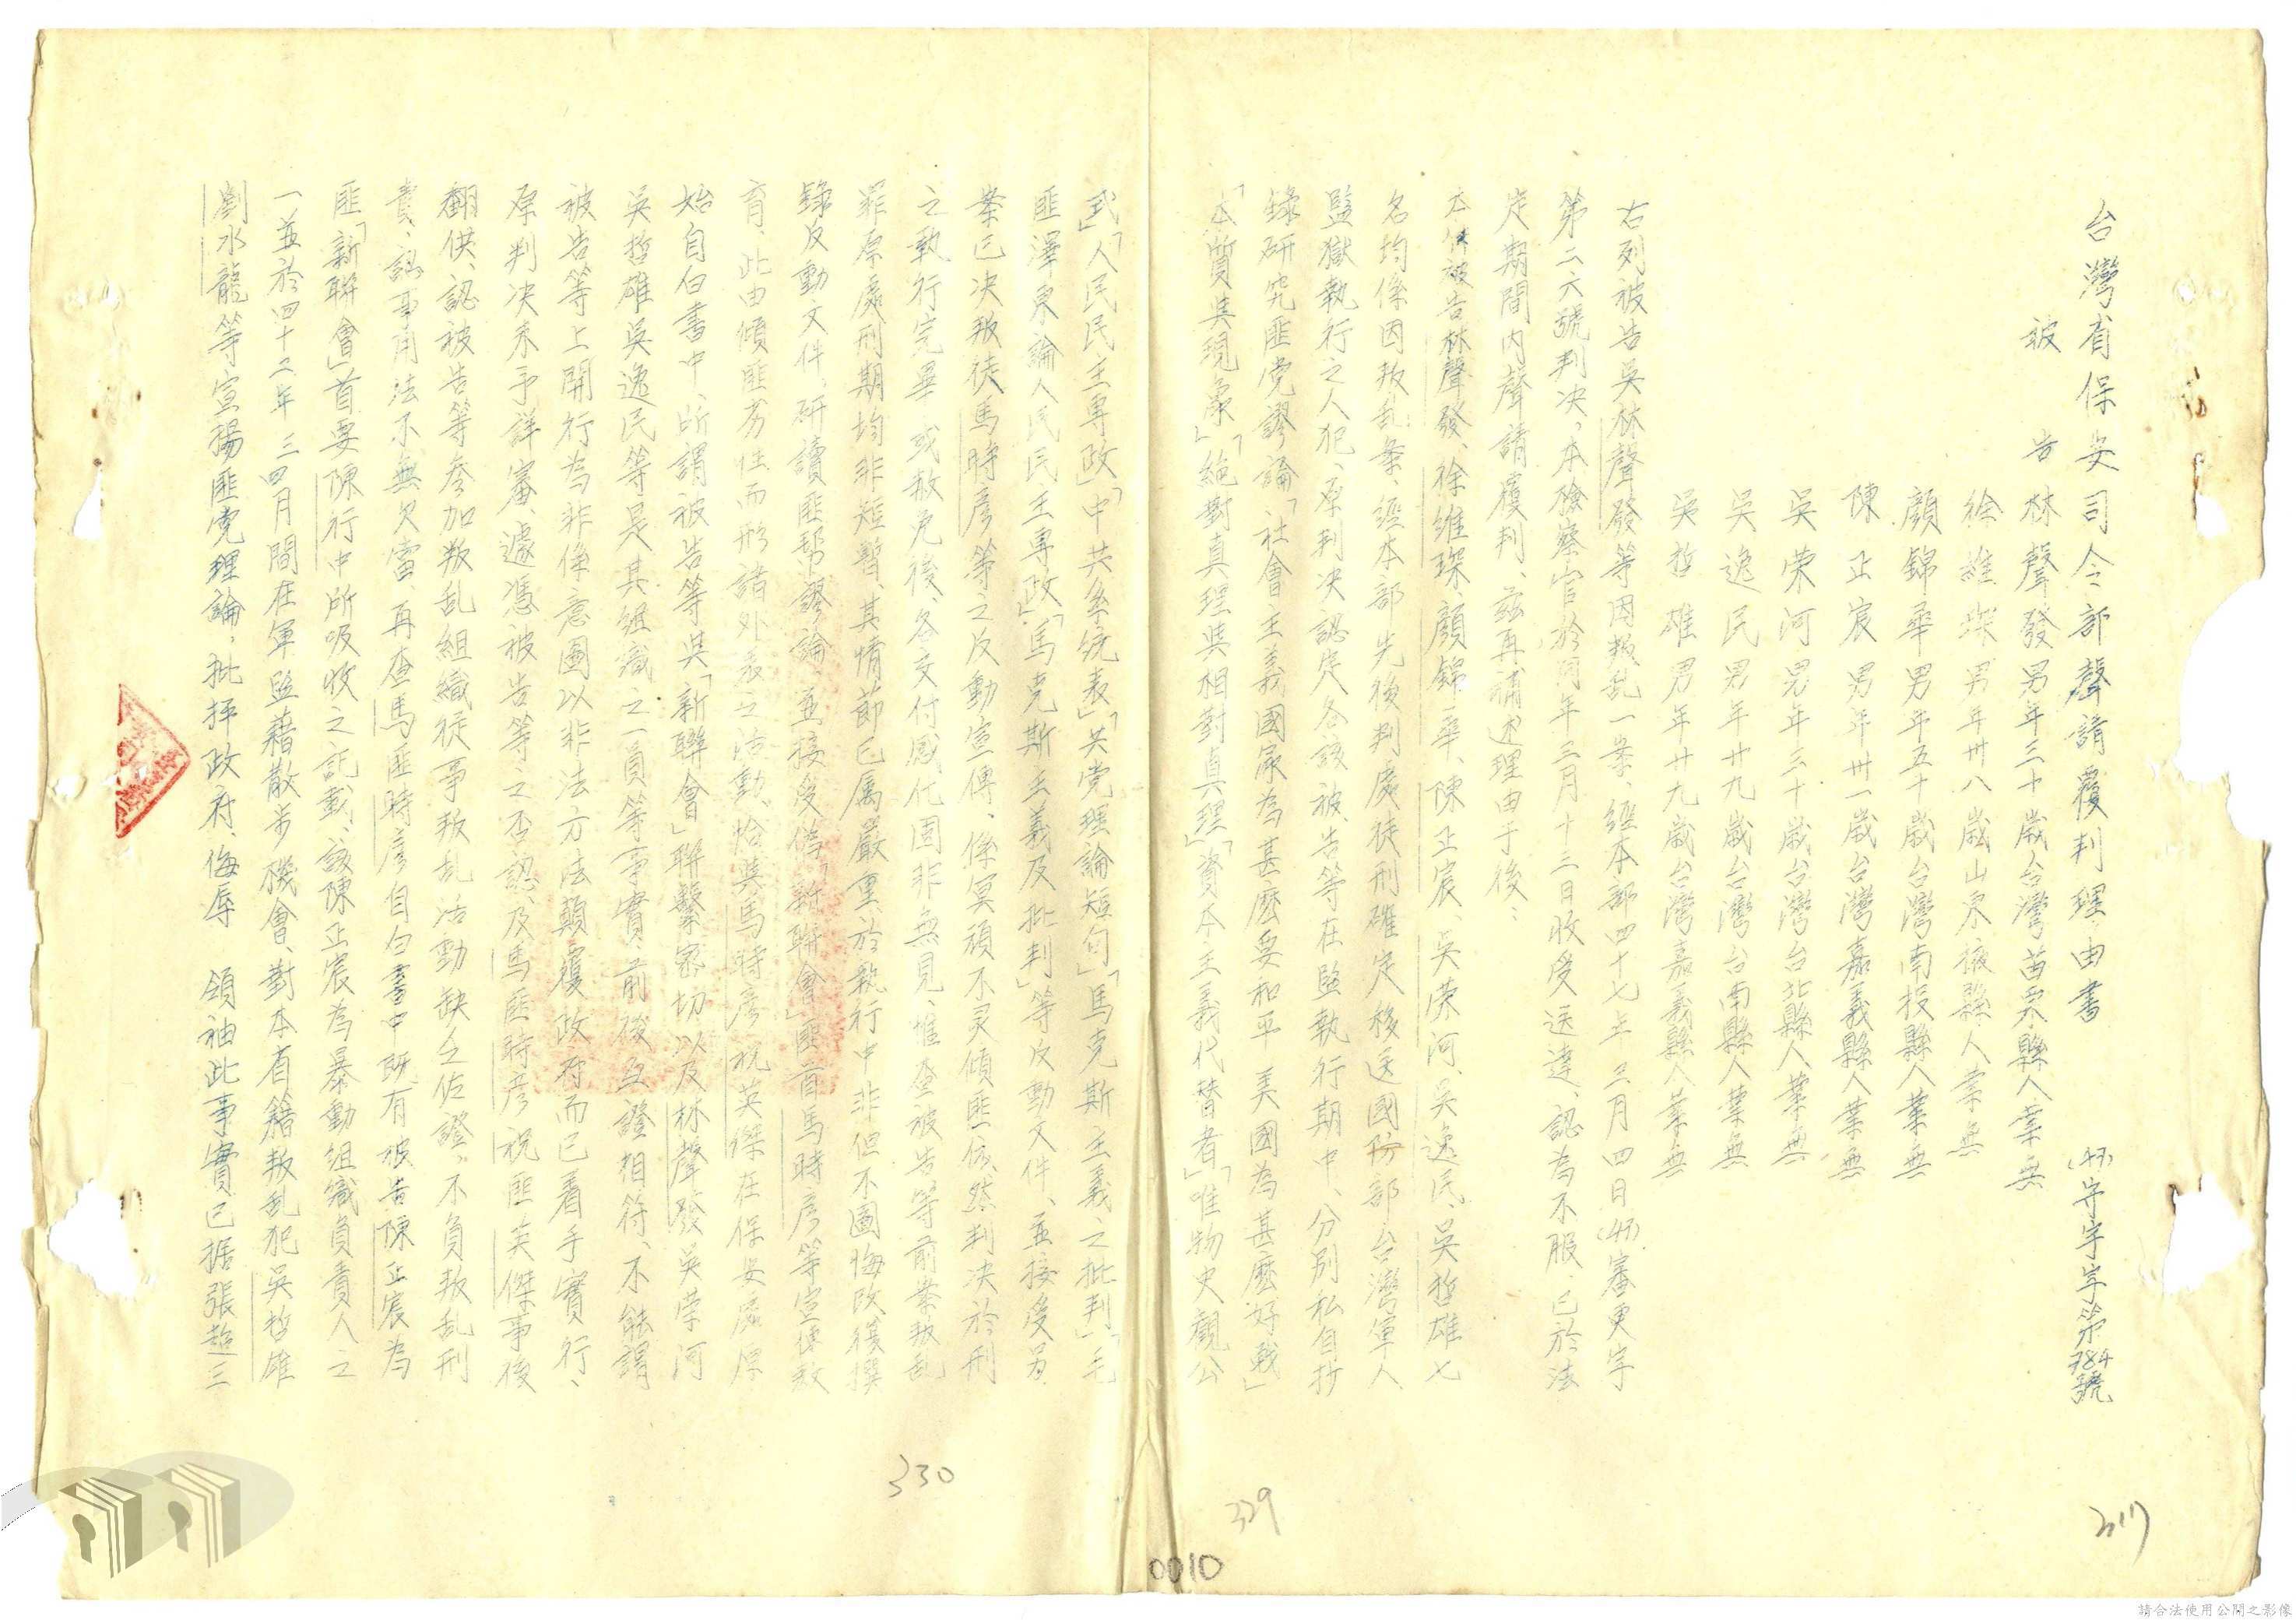 台灣省保安司令部聲請覆判理由書　(47)守宇字第784號
被告　林聲發男年三十歲台灣苗栗縣人業無
徐維琛男年卅八歲山東掖縣人業無
顏錦華男年五十歲台灣南投縣人業無
陳正宸男年卅一歲台灣嘉義縣人業無
吳榮河男年三十歲台灣台北縣人業無
吳逸民男年廿九歲台灣台南縣人業無
吳哲雄男年廿九歲台灣嘉義縣人業無
右列被告吳林聲發等因叛乱一案、經本部四十七年三月四日(47)審更字
第二六號判决、本檢察官於同年三月十三日收受送達、認為不服、已於法
定期間內聲請覆判、茲再補述理由于後：
本件被告林聲發、徐維琛、顏錦華、陳正宸、吳榮河、吳逸民、吳哲雄七
名均係因叛乱案、經本部先後判處徒刑確定移送國防部台灣軍人
監獄執行之人犯、原判决認定各該被告等在監執行期中、分別私自抄
錄研究匪党謬論「社會主義國家為甚麼要和平　美國為甚麼好戰」
「本質與現象」「絕對真理與相對真理」「資本主義代替者」「唯物史觀公
式」「人民民主專政」「中共系統表」「共党理論短句」「馬克斯主義之批判」「毛
匪澤東論人民民主專政」「馬克斯主義及批判」等反動文件、並接受另
案已决叛徒馬時彥等之反動宣傳、係冥頑不灵傾匪依然判决於刑
之執行完畢或赦免後、各交付感化固非無見、惟查被告等前案叛乱
罪原處刑期均非短暫、其情節已属嚴重、於執行中非但不圖悔改獲撰
錄反動文件、研讀匪幫謬論、並接受偽「新聯會」匪首馬時彥等宣傳教
育、此由傾匪劣性而形諸外表之活動、恰與馬時彥祝英傑在保安處原
始自白書中、所謂被告等與「新聯會」聯繫密切以及林聲發吳榮河
吳哲雄吳逸民等是其組織之一員等事實、前後互證相符、不能謂
被告等上開行為非係意圖以非法方法顛覆政府而已着手實行、
原判决未予詳審、遽憑被告等之否認、及馬匪時彥祝匪英傑事後
翻供、認被告等參加叛乱組織從事叛乱活動缺乏佐證、不負叛乱刑
責、認事用法不無欠當、再查馬匪時彥自白書中既有被告陳正宸為
匪「新聯會」首要陳行中所吸收之記載、該陳正宸為暴動組織負責人之
一並於四十三年三四月間在軍監藉散步機會、對本省籍叛乱犯吳哲雄
劉水龍等宣揚匪党理論、批評政府、侮辱　領袖此事實已据張趙三
317
329
330
0010
請合法使用公開之影像